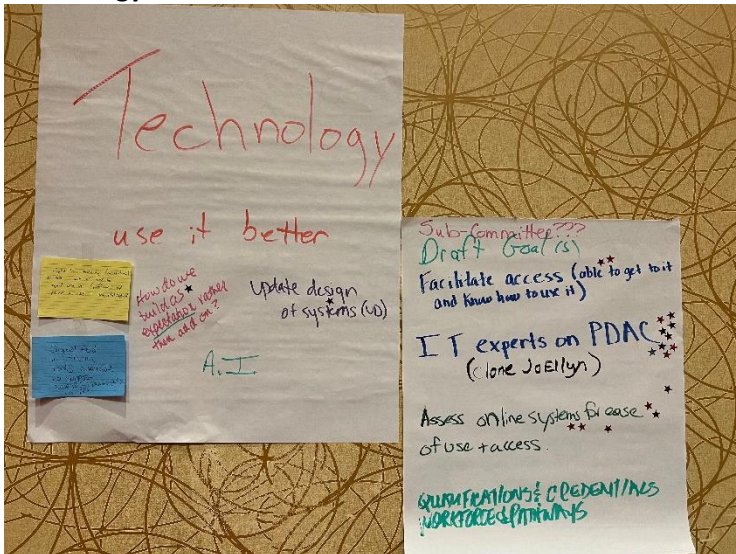 Technology
use it better
How do we
build a
expectation rather
than add on?
Update design
of systems (UD)
A.I
Sub-Committee???
Draft Goal(s)
Facilitate access (able to get to it
and know how to use it)
IT experts on PDAC
(clone JoEllyn)
Assess online systems for ease
of use + access.
QUALIFICATIONS & CREDENTIALS
WORKFORCE & PATHWAYS